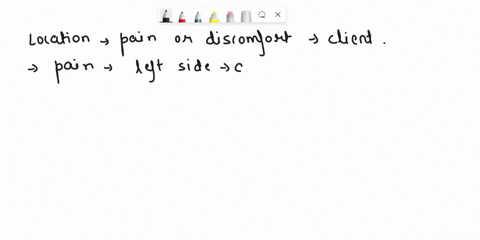 Location → pain or discomfort → client.
→ pain → left side → c